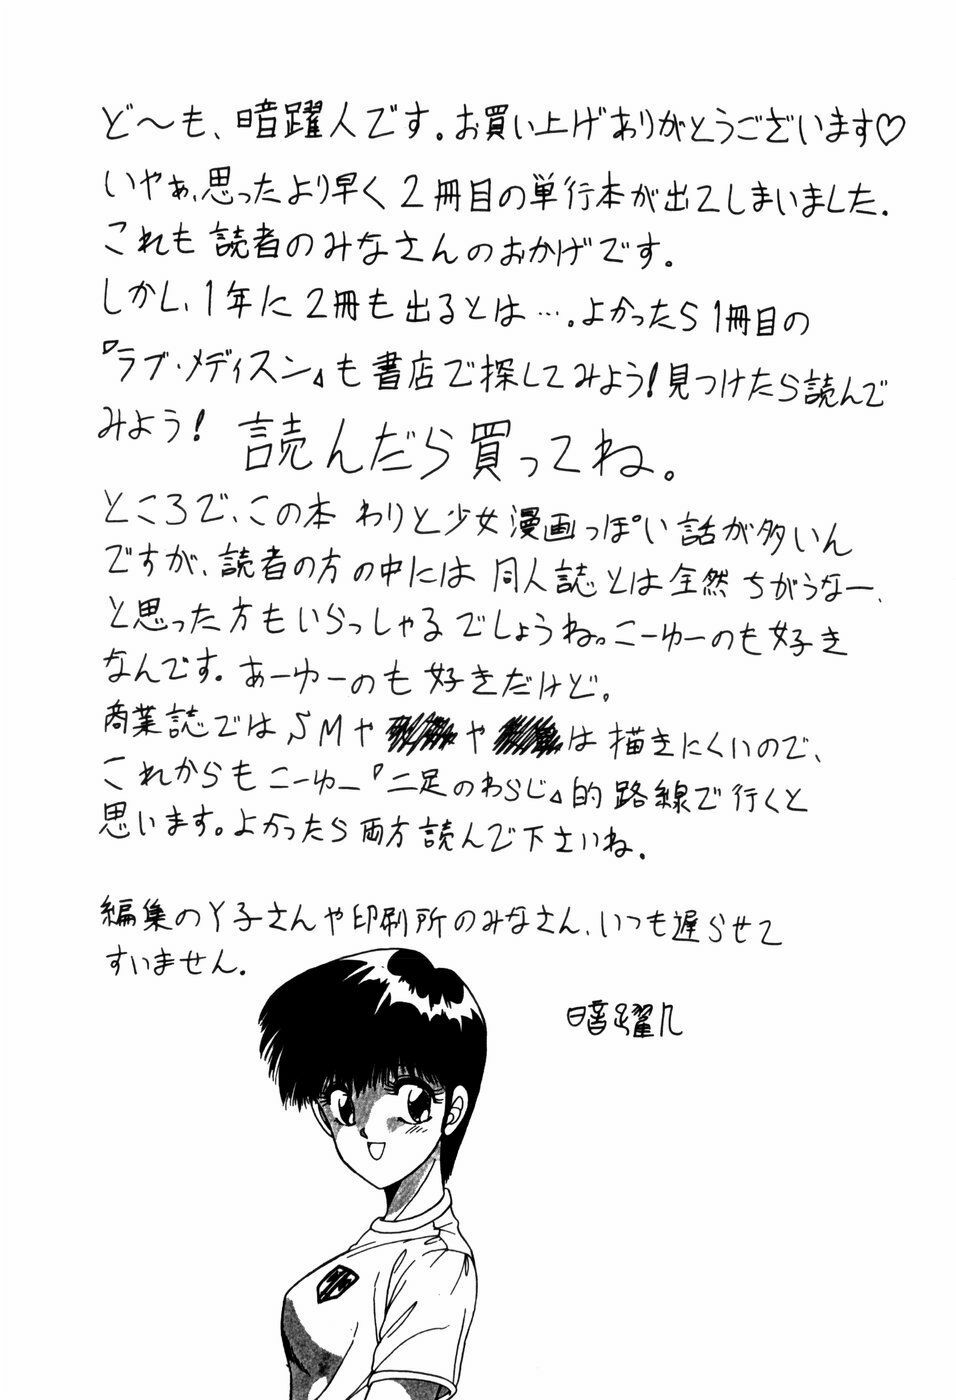 ど〜も、暗躍人です。お買い上げありがとうございます♡
いやぁ、思ったより早く2冊目の単行本が出てしまいました.
これも 読者のみなさんのおかげです。
しかし、1年に 2冊も出るとは…。よかったら 1冊目の
『ラブ・メディスン』も書店で探してみよう!見つけたら読んで
みよう! 読んだら買ってね。
ところで、この本 わりと少女漫画っぽい話が多いん
ですが、読者の方の中には 同人誌とは全然ちがうなー、
と思った方もいらっしゃるでしょうね。こーゆーのも好き
なんです。あーゆーのも好きだけど。
商業誌ではSMや や は描きにくいので、
これからもこーゆー『二足のわらじ』的路線で行くと
思います。よかったら両方読んで下さいね.
編集のY子さんや印刷所のみなさん、いつも遅らせて
すいません.
暗躍人